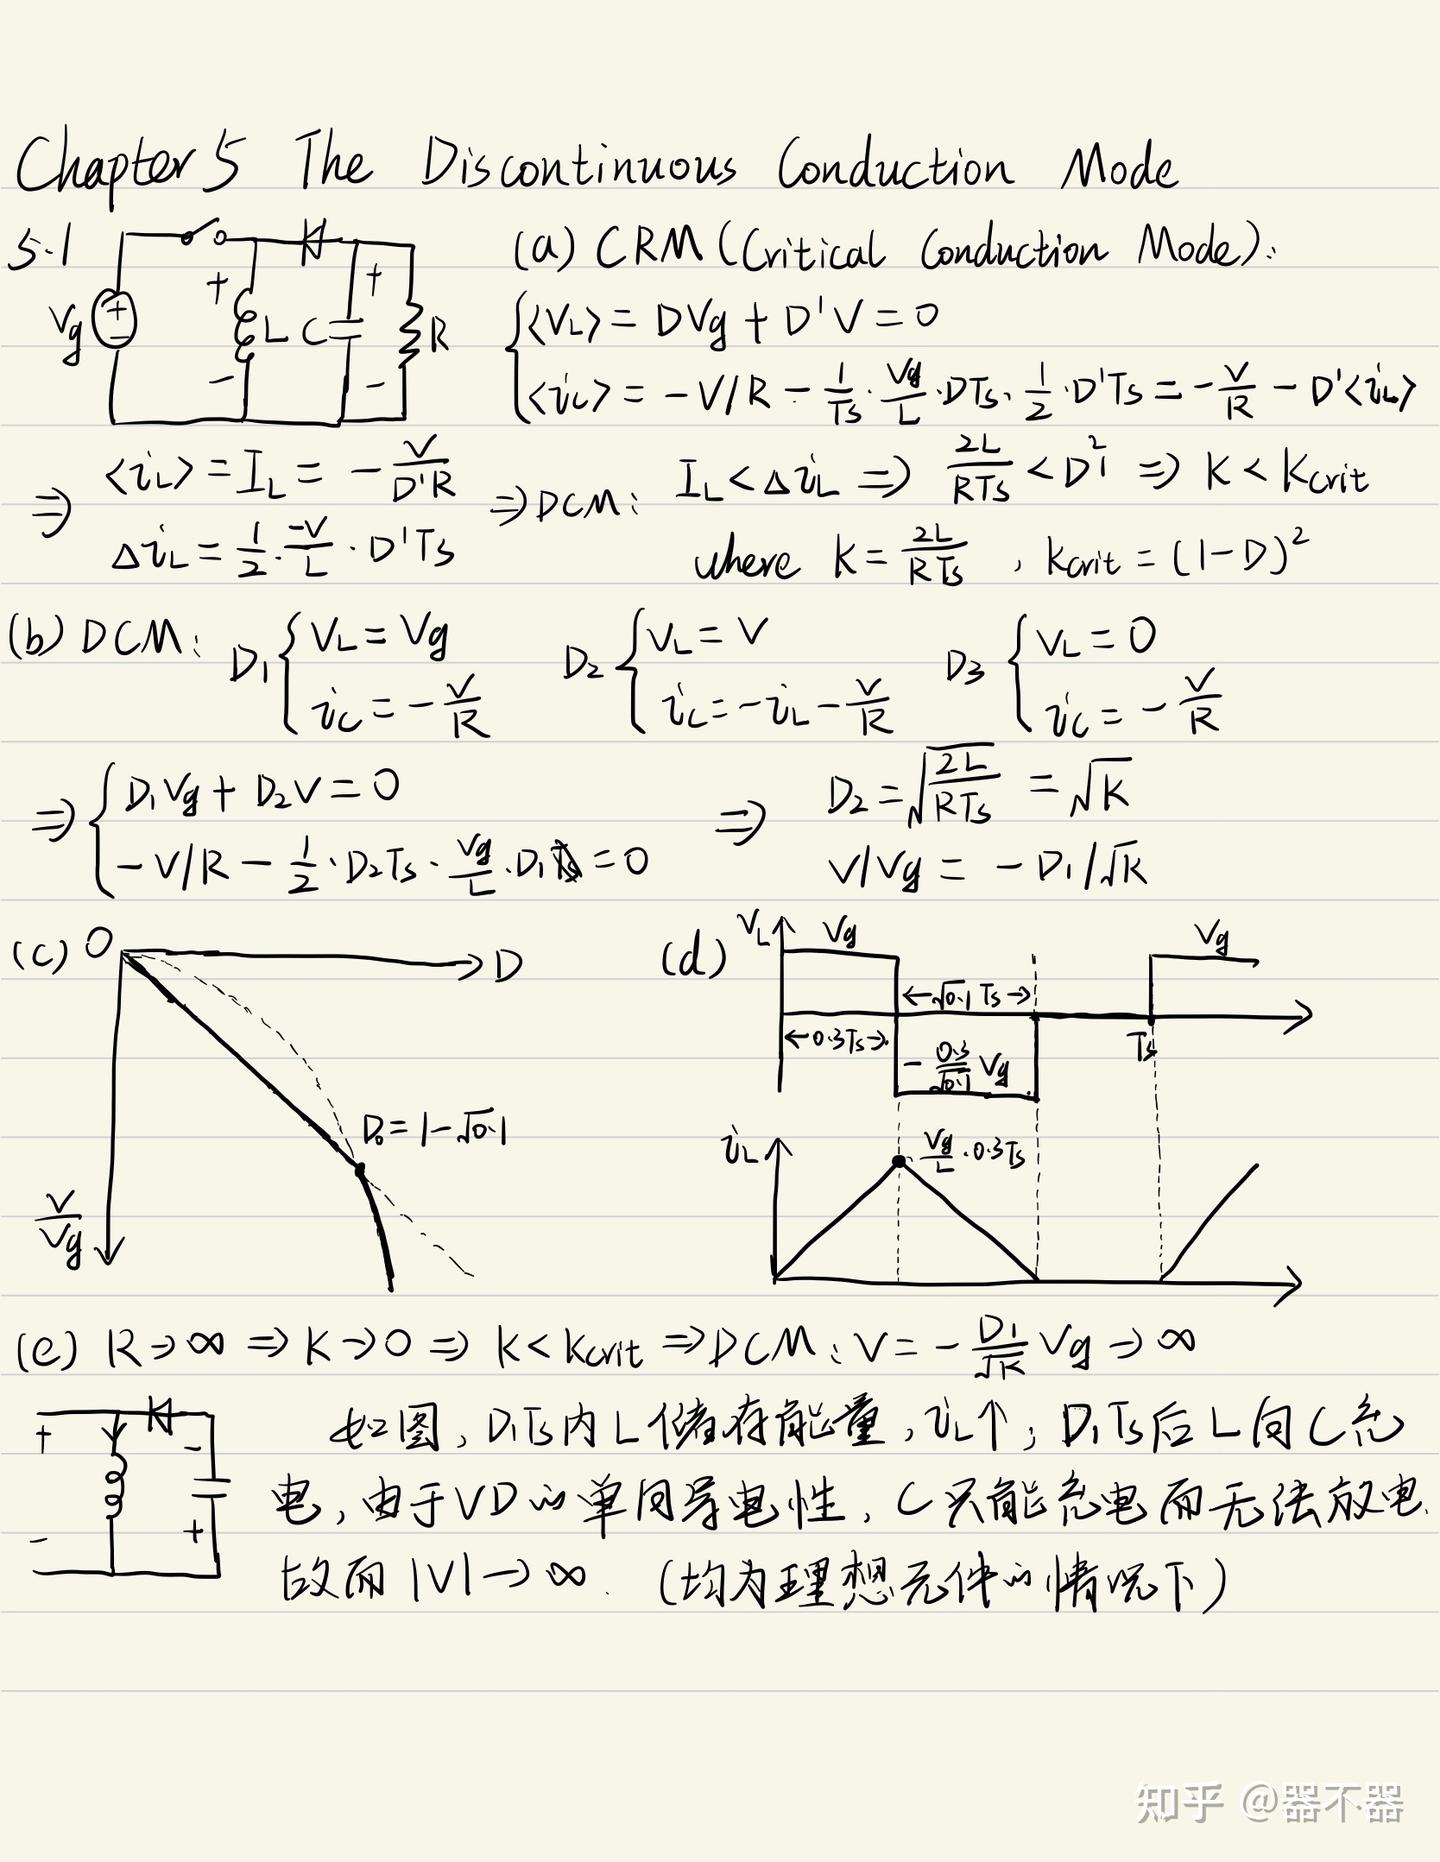 Chapter 5 The Discontinuous Conduction Mode
5.1
Vg + − + − L C + − R
(a) CRM (Critical Conduction Mode):
⟨VL⟩ = DVg + D'V = 0
⟨ic⟩ = −V/R − 1/Ts · Vg/L · DTs · 1/2 · D'Ts = −V/R − D'⟨iL⟩
⇒ ⟨iL⟩ = IL = −V/D'R
ΔiL = 1/2 · −V/L · D'Ts
⇒ DCM: IL < ΔiL ⇒ 2L/RTs < D'² ⇒ K < Kcrit
where K = 2L/RTs , Kcrit = (1−D)²
(b) DCM: D1 { VL = Vg D2 { VL = V D3 { VL = 0
ic = −V/R ic = −iL − V/R ic = −V/R
⇒ { D1Vg + D2V = 0 ⇒ D2 = √(2L/RTs) = √K
−V/R − 1/2 · D2Ts · Vg/L · D1 = 0 V/Vg = −D1/√K
(c) 0 D
V/Vg
D0 = 1−√0.1
(d) VL Vg Vg
←√0.1 Ts→
←0.3Ts→ Ts
−0.3/√0.1 Vg
iL Vg/L · 0.3Ts
(e) R→∞ ⇒ K→0 ⇒ K < Kcrit ⇒ DCM: V = −D1/√K Vg → ∞
+ − − +
如图, D1Ts内L储存能量, iL↑; D1Ts后L向C充
电, 由于VD的单向导电性, C只能充电而无法放电.
故而 |V|→∞. (均为理想元件的情况下)
知乎 @器不器